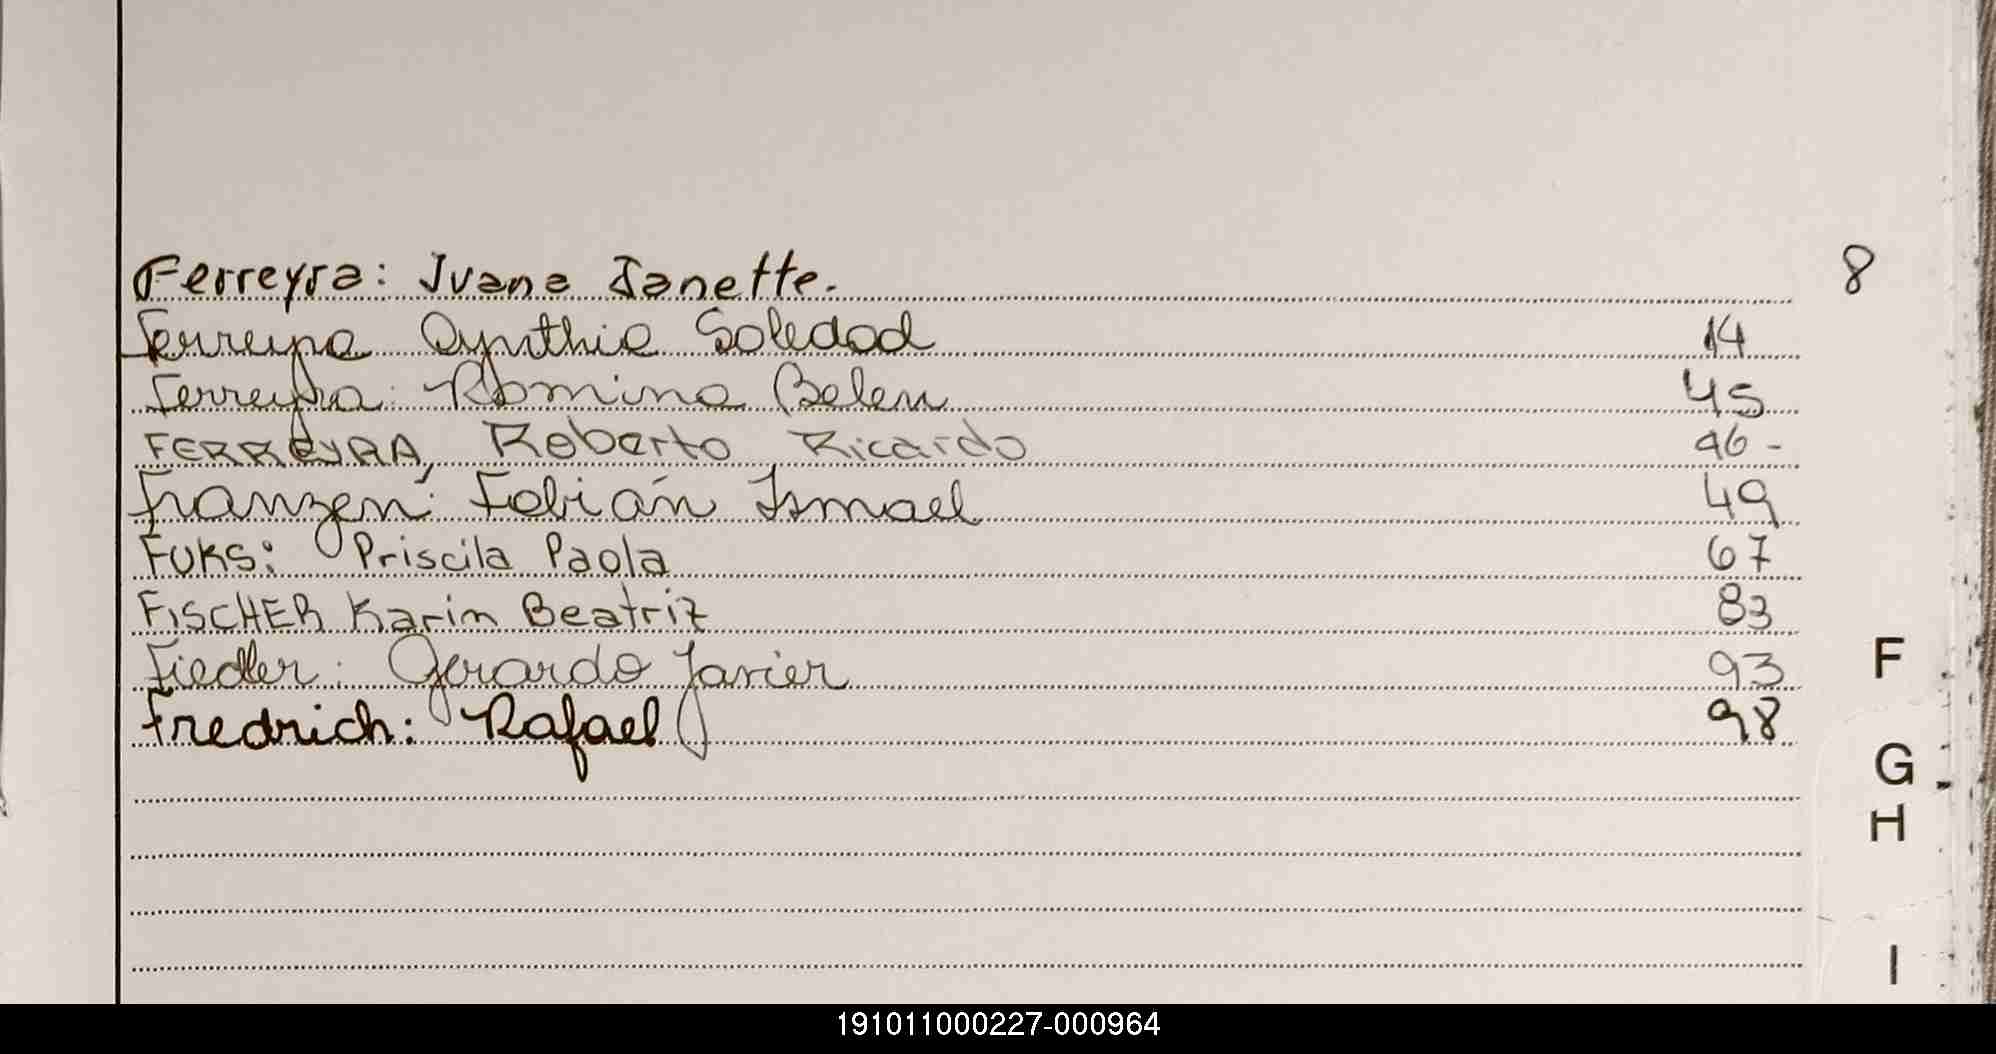 Ferreyra: Ivana Janette. 8
Ferreyra Cynthia Soledad 14
Ferreyra: Romina Belen 45
FERREYRA, Roberto Ricardo 46-
Franzen: Fabián Ismael 49
FUKS: Priscila Paola 67
FISCHER Karim Beatriz 83
Fiedler: Gerardo Javier 93
Fredrich: Rafael 98
F
G
H
I
191011000227-000964